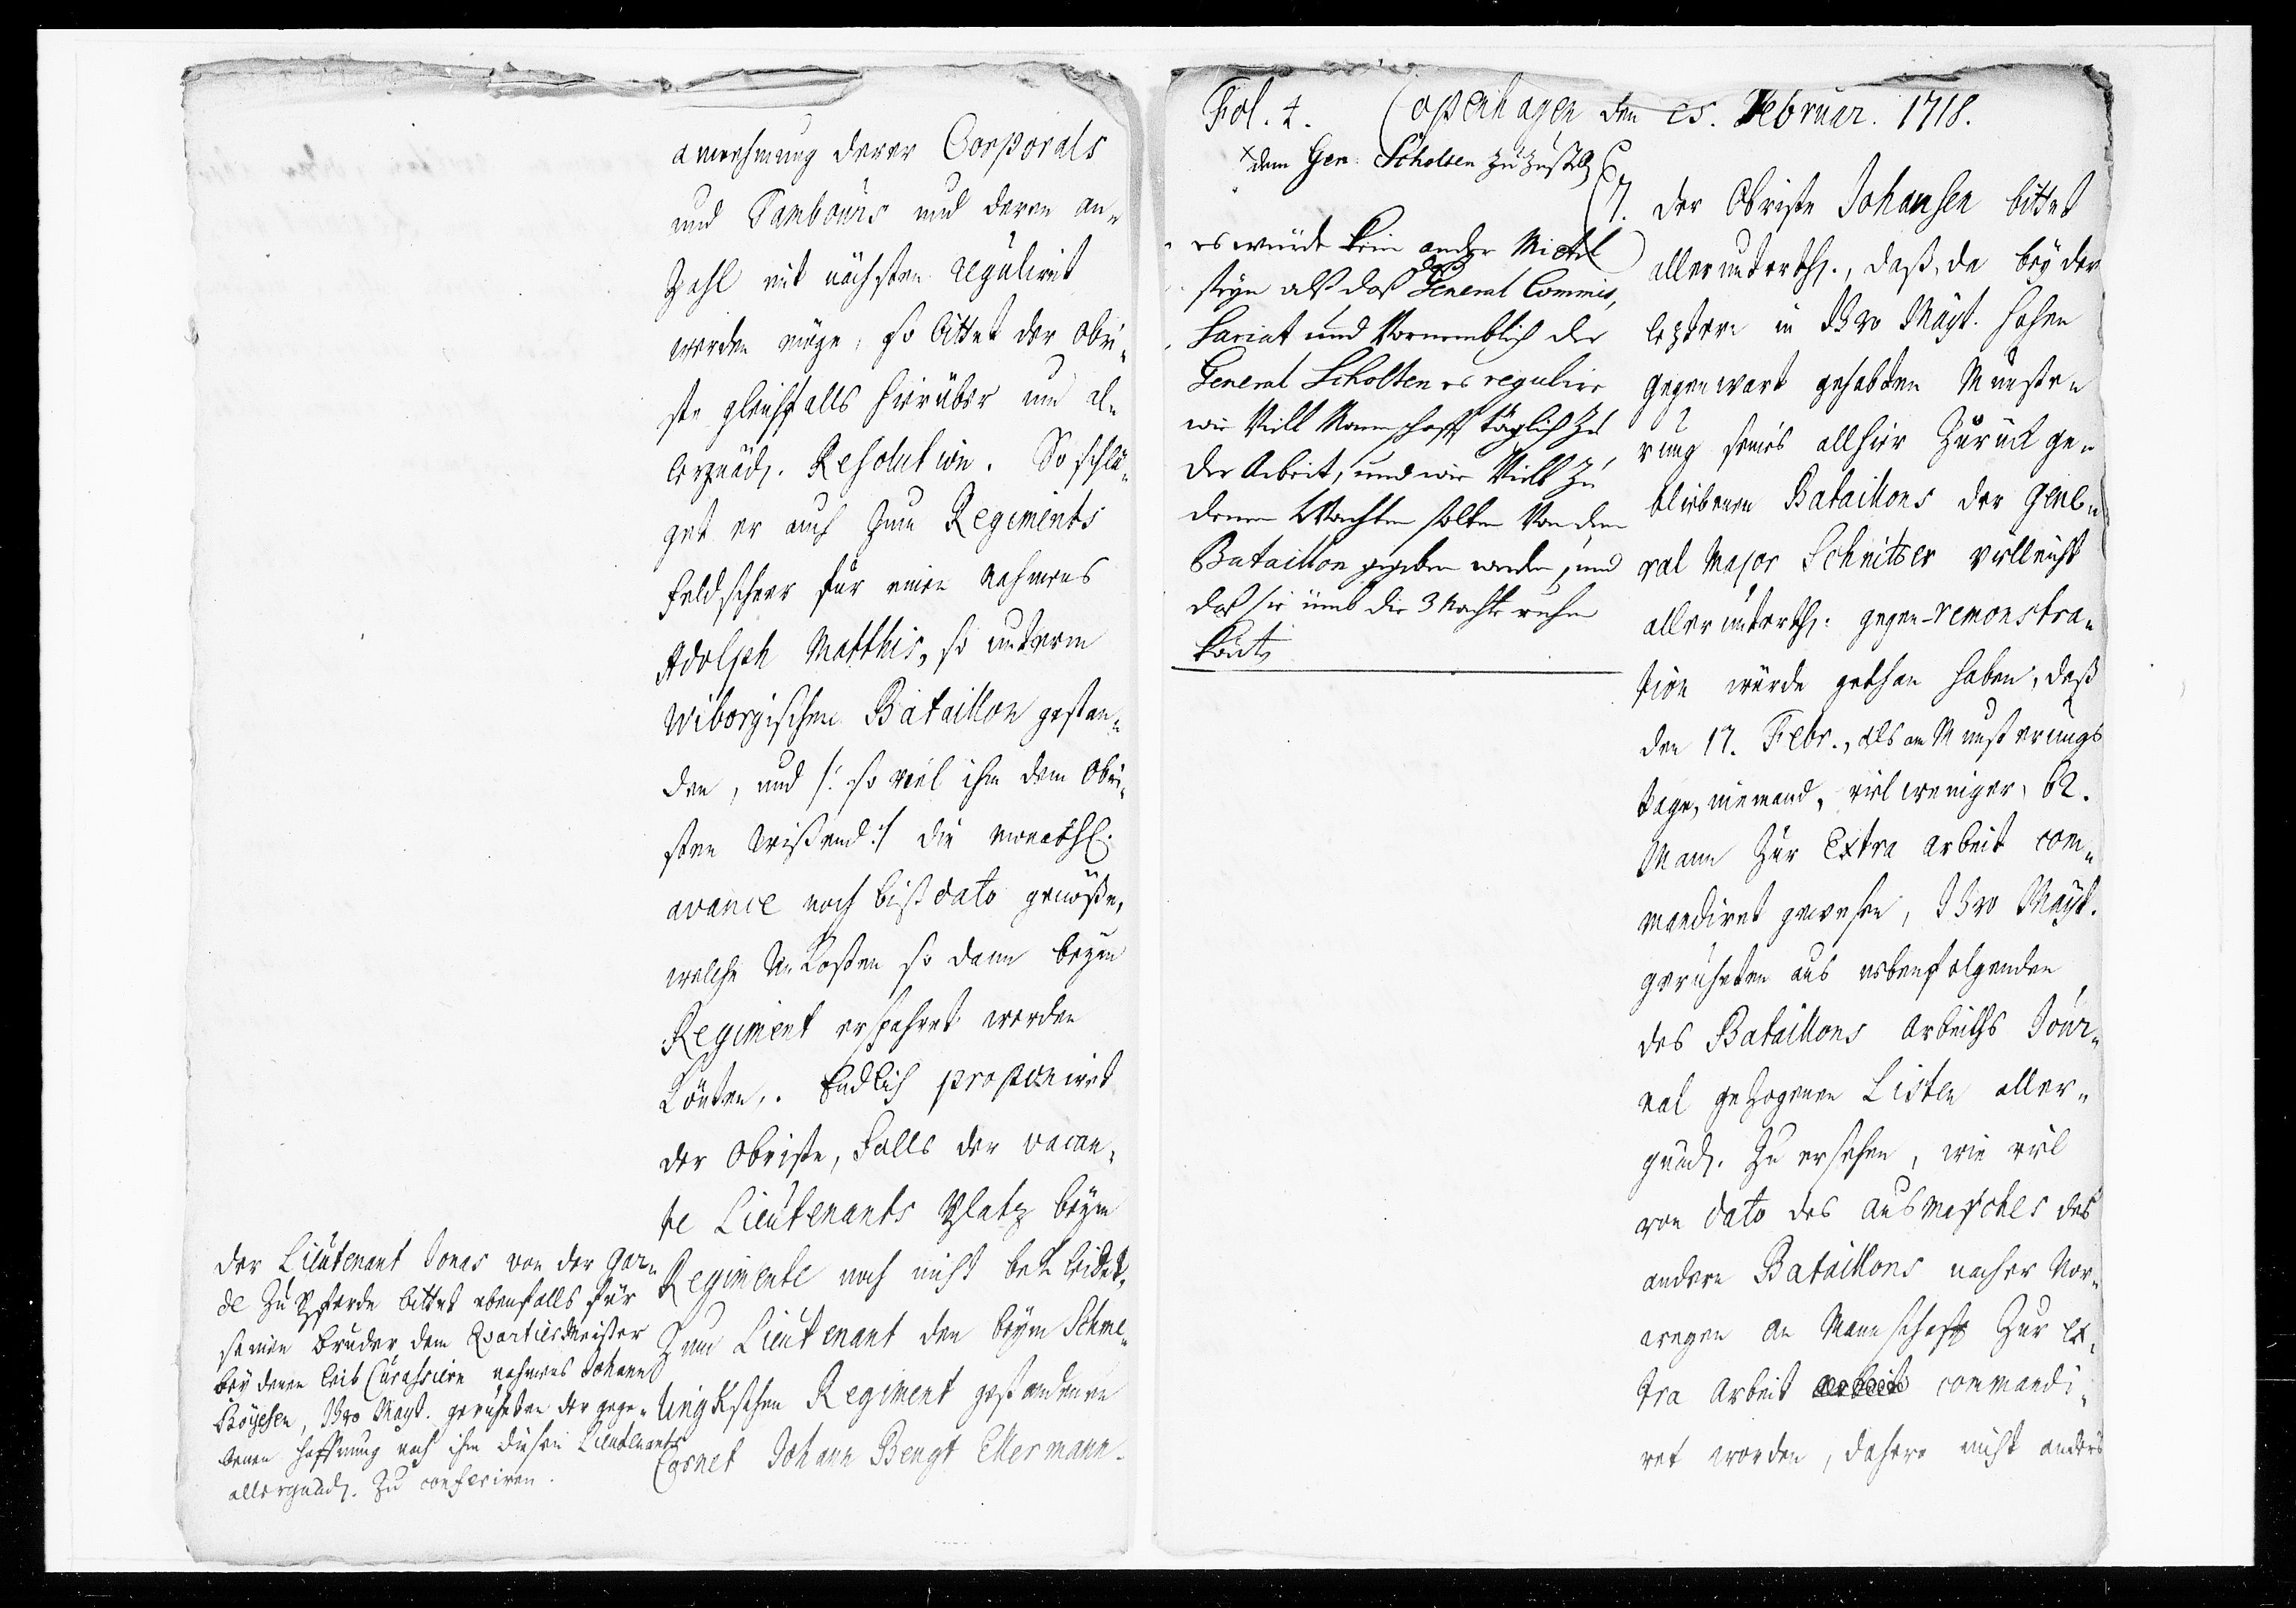 annehmung derer Corporals
und Tambours und deren an-
zahl mit nächsten reguliret
werden möge, so bittet der Obri-
ste gleichfalls hierüber um al-
lergnäd. Resolution. So schlä-
get er auch zum Regiments
Feldscheer für einen Nahmens
Adolph Matthis, so unterm
Wiborgischen Bataillon gestan-
den, und /: so viel ihm dem Obri-
sten wißend :/ die monathl.
avance noch biß dato genößen,
welche Unkosten so dann beym
Regiment erspahret werden
könten. Endlich proponiret
der Obriste, Falls der vacan-
te Lieutenants Platz beym
Regimente noch nicht bekleidet,
Zum Lieutenant den beym Schme-
lingkschen Regiment gestandenen
Cornet Johann Bengt Ellermann.
der Lieutenant Jonas von der Gar-
de zu Pferde bittet ebenfalls für
seinen Bruder dem Quartiermeister
bey denen Leib Curassiern nahmens Johann
Böysen, Ihro Mayt. geruheten der gege-
benen Hoffnung nach ihm diesen Lieutenants
allergnäd. zu conferiren.
Fol. 4. Copenhagen den 25. Februar. 1718.
x dem Gen. Scholten zu zustell
es würde kein ander Mittel
seyn alß daß daß General Commis-
sariat und Vornemblich der
General Scholten es regulire
wie Viell Mannschafft täglich zu
der Arbeit, und wie Viell zu
denen Wachten solten Von dem
Bataillon gegeben werden, und
daß sie umb die 3 Nachte ruhen
könt
7. Der Obriste Johansen bittet
allerunterth., daß, da bey der
letztern in Ihro Mayt. hohen
gegenwart gehabten Munste-
rung seines allhier zurück ge-
bliebenen Bataillons der Gene-
ral Major Schnitter villeicht
allerunterth. gegen-remonstra-
tion würde gethan haben, daß
den 17. Febr., als am Munsterungs
tage, niemand, viel weniger, 62.
Mann zur Extra arbeit com-
mandiret gewesen, Ihro Mayt.
geruheten aus nebenfolgenden
des Bataillons arbeiths Jour-
nal gezogenen Listen aller-
gnäd. zu ersehen, wie viel
von dato des ausmarsches des
andern Bataillons nacher Nor-
wegen an Mannschafft zur ex-
tra arbeit arbeit commandi-
ret worden, dahero nicht anders